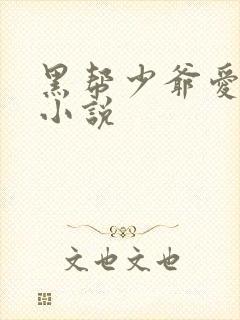 黑帮少爷爱
小说
文也文也